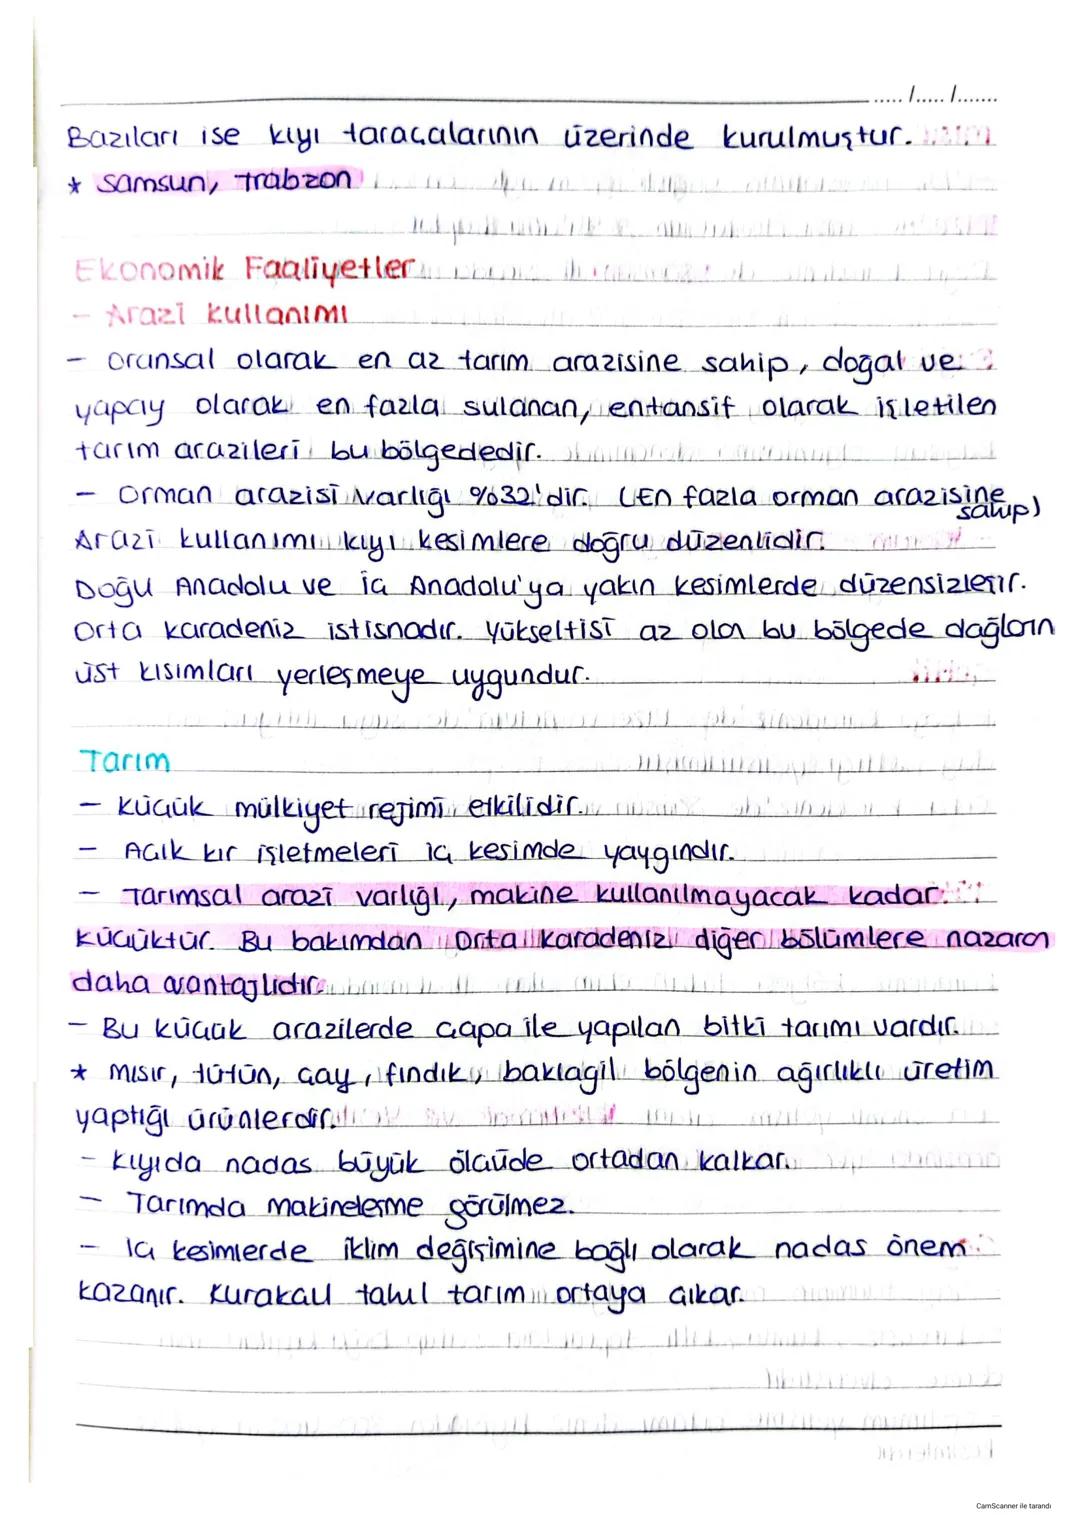 ...../...../.......
Bazıları ise kıyı taraçalarının üzerinde kurulmuştur.
* Samsun, Trabzon
Ekonomik Faaliyetler
- Arazi kullanımı
- Oransal olarak en az tarım arazisine sahip, doğal ve
yapay olarak en fazla sulanan, entansif olarak işletilen
tarım arazileri bu bölgededir.
- Orman arazisi varlığı %32'dir. (En fazla orman arazisine
sahip)
Arazi kullanımı kıyı kesimlere doğru düzenlidir.
Doğu Anadolu ve İç Anadolu'ya yakın kesimlerde düzensizleşir.
Orta Karadeniz istisnadır. Yükseltisi az olan bu bölgede dağların
üst kısımları yerleşmeye uygundur.
Tarım
- Küçük mülkiyet rejimi etkilidir.
- Açık kır işletmeleri iç kesimde yaygındır.
- Tarımsal arazi varlığı, makine kullanılmayacak kadar
küçüktür. Bu bakımdan Orta Karadeniz diğer bölümlere nazaran
daha avantajlıdır.
- Bu küçük arazilerde çapa ile yapılan bitki tarımı vardır.
* Mısır, tütün, çay, fındık, baklagil bölgenin ağırlıklı üretim
yaptığı ürünlerdir.
- Kıyıda nadas büyük ölçüde ortadan kalkar.
- Tarımda makineleşme görülmez.
- İç kesimlerde iklim değişimine bağlı olarak nadas önem
kazanır. Kurakçıl tahıl tarım ortaya çıkar.
CamScanner ile tarandı